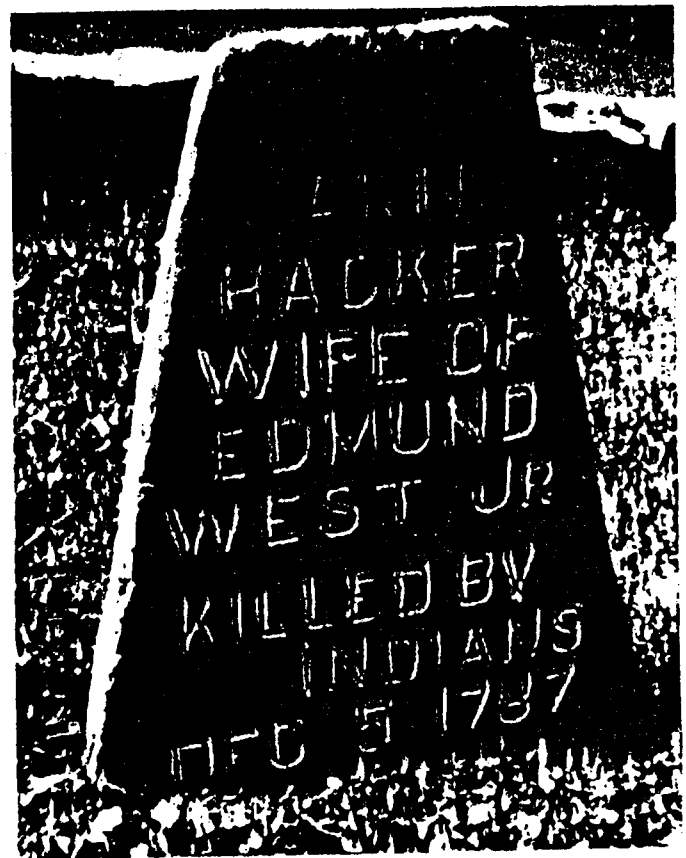 ANN
HACKER
WIFE OF
EDMUND
WEST JR
KILLED BY
INDIANS
DEC 5 1787